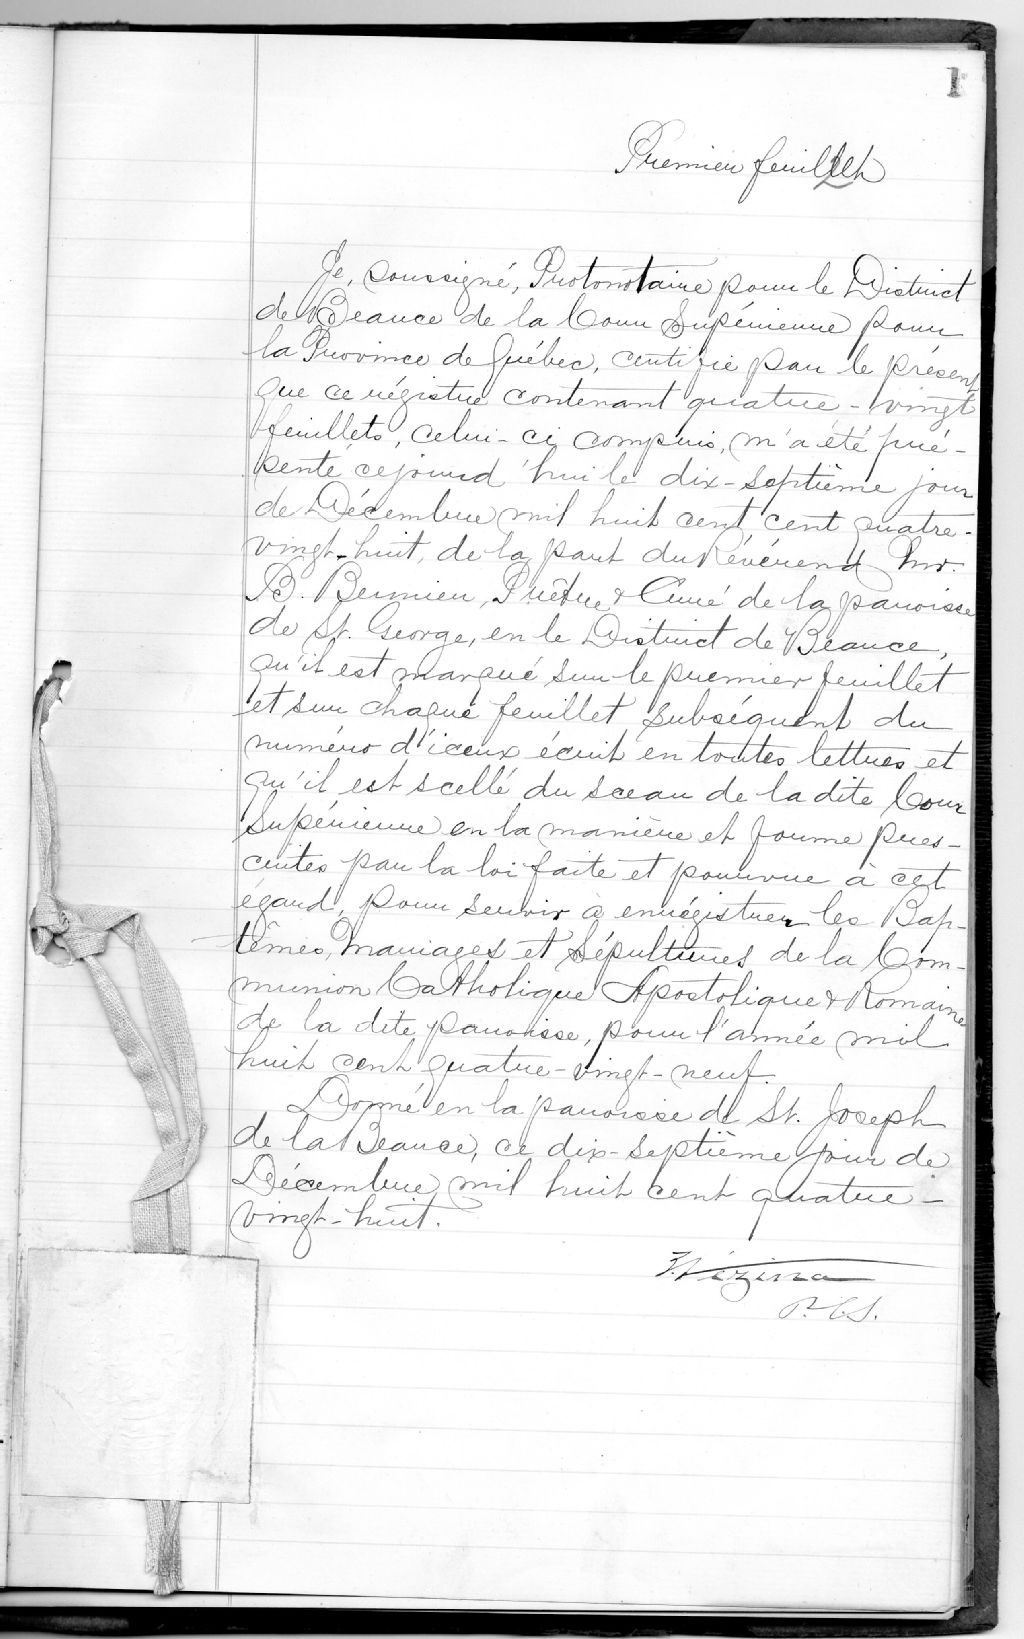 1
Premier feuillet
Je, soussigné, Protonotaire pour le District
de Beauce de la Cour Supérieure pour
la Province de Québec, certifie par le présent
que ce régistre contenant quatre-vingt
feuillets, celui-ci compris, m'a été pré-
senté cejourd'hui le dix-septième jour
de Décembre mil huit cent cent quatre-
vingt-huit, de la part du Révérend Mr.
B. Bernier, Prêtre & Curé de la paroisse
de St. George, en le District de Beauce,
qu'il est marqué sur le premier feuillet
et sur chaque feuillet subséquent du
numéro d'iceux écrit en toutes lettres et
qu'il est scellé du sceau de la dite Cour
Supérieure en la manière et forme pres-
crites par la loi faite et pourvue à cet
égard, pour servir à enrégistrer les Bap-
têmes, Mariages et Sépultures de la Com-
munion Catholique Apostolique & Romaine
de la dite paroisse, pour l'année mil
huit cent quatre-vingt-neuf.
Donné en la paroisse de St. Joseph
de la Beauce, ce dix-septième jour de
Décembre mil huit cent quatre-
vingt-huit.
Vézina
P.C.S.